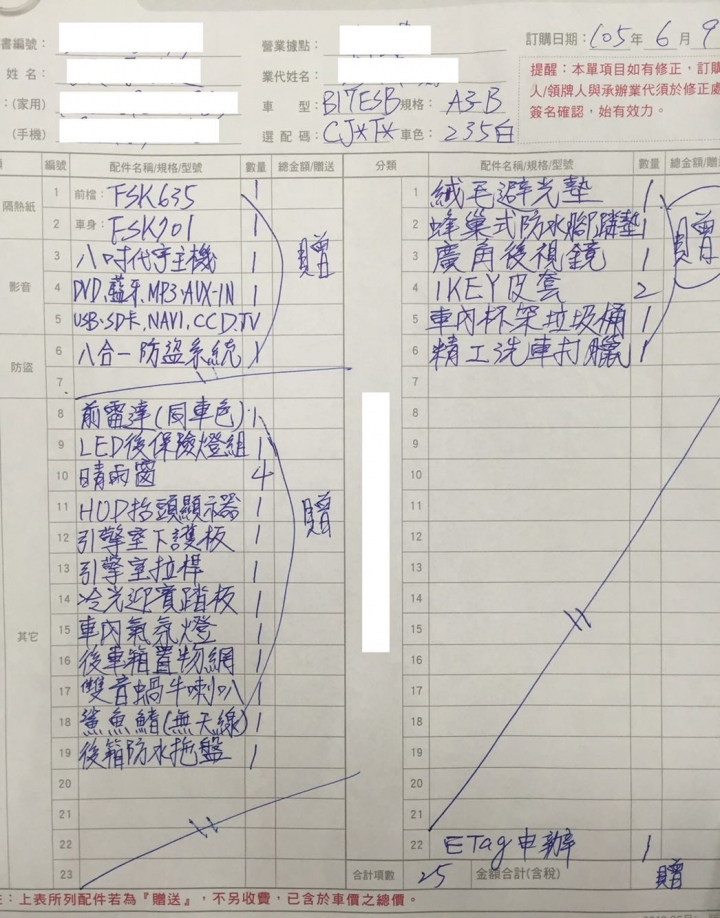 書編號：
營業據點：
訂購日期：105年 6月 9
姓 名：
業代姓名：
提醒：本單項目如有修正，訂購
人/領牌人與承辦業代須於修正處
簽名確認，始有效力。
：(家用)
車 型：B17ESB 規格：A3-B
(手機)
選 配 碼：CJ*T* 車色：235白
編號 配件名稱/規格/型號 數量 總金額/贈送 分類 配件名稱/規格/型號 數量 總金額/贈
隔熱紙
1 前檔：FSK635 1
2 車身：FSK701 1
影音
3 八吋代亨主機 1 贈
4 DVD.藍牙.MP3.AUX-IN 1
5 USB.SD卡.NAVI.CCD.TV
防盜
6 八合一防盜系統 1
7
其它
8 前雷達(同車色) 1
9 LED後保險燈組 1
10 晴雨窗 4
11 HUD抬頭顯示器 1 贈
12 引擎室下護板 1
13 引擎室拉桿 1
14 冷光迎賓踏板 1
15 車內氣氛燈 1
16 後車箱置物網 1
17 雙音蝸牛喇叭 1
18 鯊魚鰭(無天線) 1
19 後箱防水拖盤 1
20
21
22
23
1 絨毛避光墊 1
2 蜂巢式防水腳踏墊 1 贈
3 廣角後視鏡 1
4 IKEY皮套 2
5 車內杯架垃圾桶 1
6 精工洗車打臘 1
7
8
9
10
11
12
13
14
15
16
17
18
19
20
21
22 ETag申辦 1
合計項數 25 金額合計(含稅) 贈
：上表所列配件若為『贈送』，不另收費，已含於車價之總價。